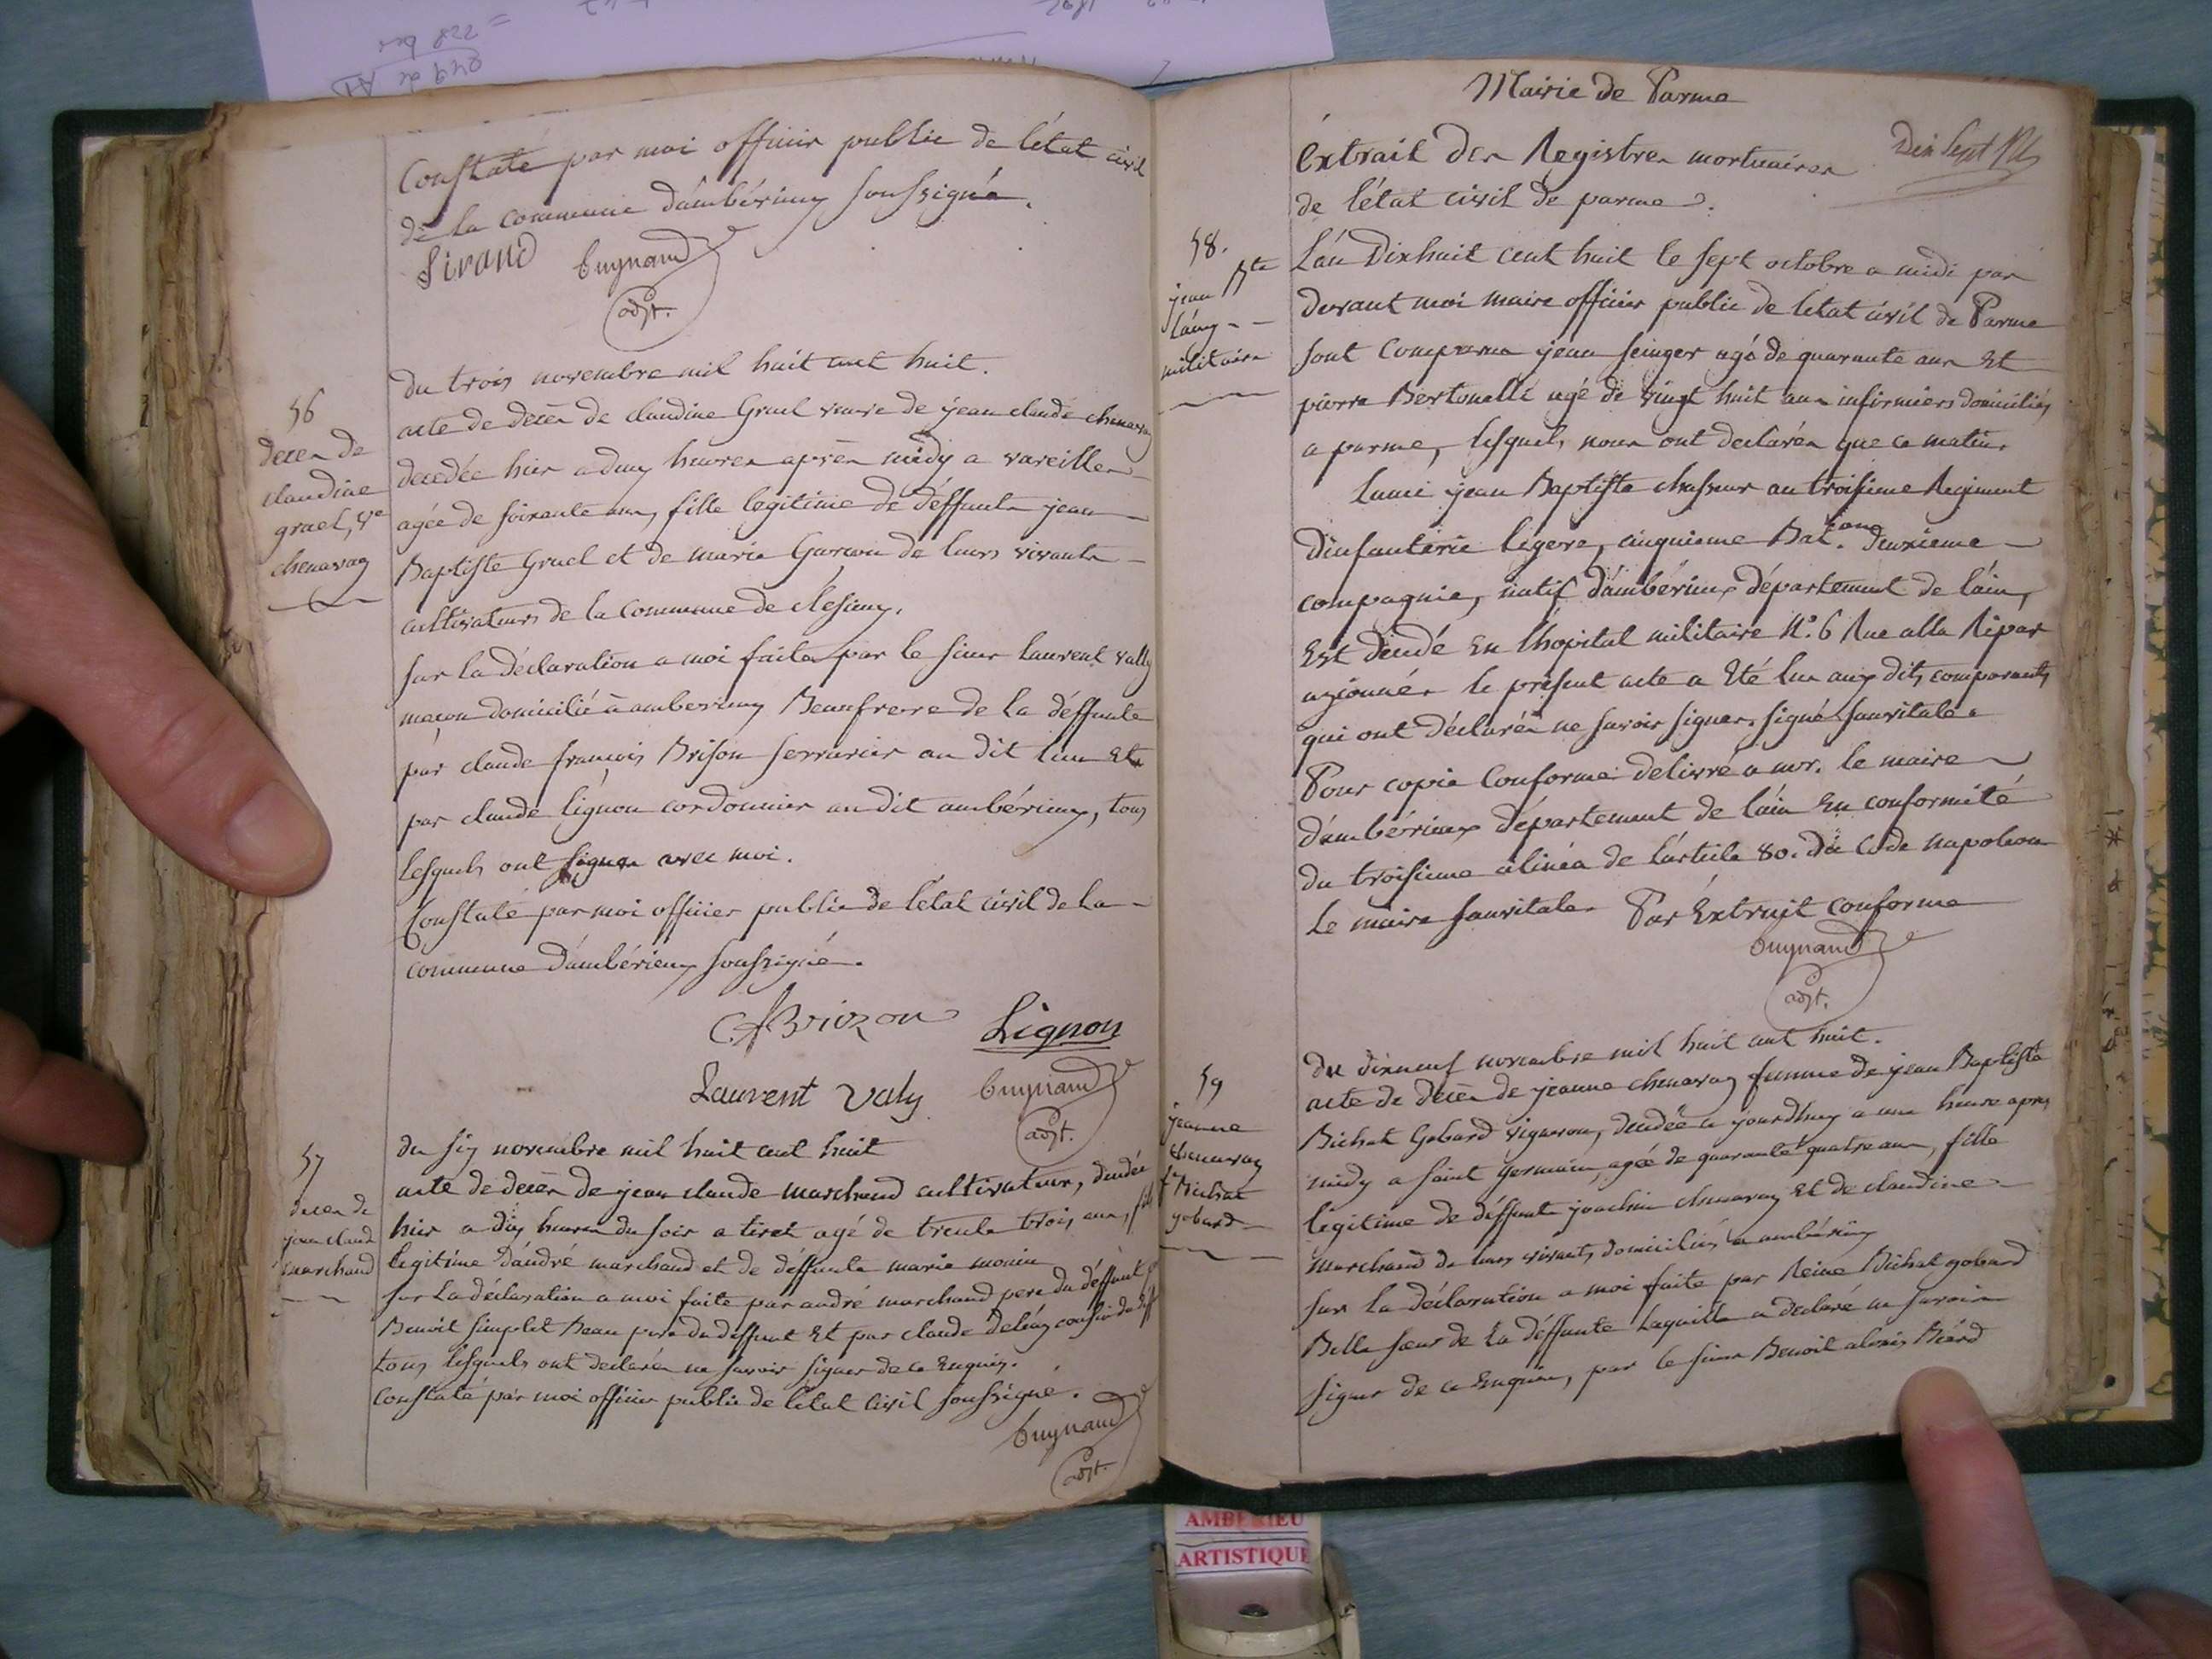 Constaté par moi officier public de l'état civil
de la commune d'ambérieux soussigné.
Sirand Cuynand
adjt.
56
decès de
claudine
gruel, ve
chenavaz
du trois novembre mil huit cent huit.
acte de decès de claudine Gruel veuve de jean claude chenavaz
decedée hier a deux heures après midy a vareilles
agée de soixante ans, fille legitime de deffunts jean
Baptiste Gruel et de marie Garcon de leurs vivants
cultivateurs de la commune de
sur la déclaration a moi faite par le sieur laurent vally
maçon domicilié à amberieux Beaufrere de la déffunte
par claude françois Brison serrurier au dit lieu Et
par claude lignon cordonnier au dit ambérieux, tous
lesquels ont signes avec moi.
Constaté par moi officier public de l'état civil de la
commune d'ambérieux soussigné.
CfBrizon Lignon
Laurent Valy Cuynand
adjt.
57
decès de
jean claude
marchand
du six novembre mil huit cent huit
acte de decès de jean claude marchand cultivateur, decedé
hier a dix heures du soir a tiret agé de trente trois ans, fils
legitime d'andré marchand et de déffunte marie monin
sur la déclaration a moi faite par andré marchand pere du déffunt
Benoit simplet Beau pere du deffunt Et par claude cousin du deff
tous lesquels ont declarés ne savoir signer de ce Enquis.
Constaté par moi officier public de l'état civil soussigné.
Cuynand
adjt.
Mairie de Parme
Extrait des Registres mortuaires
de l'état civil de parme.
Dix Sept
58.
jean Bte
militaire
L'an Dixhuit cent huit le sept octobre a midi par
devant moi maire officier public de letat civil de Parme
sont Comparus jean seinger agé de quarante ans Et
pierre Bertonelli agé de vingt huit ans infirmiers domiciliés
a parme, lesquels nous ont declarés que ce matin
jean Baptiste chasseur au troisieme Regiment
d'infanterie legere, cinquieme Bat.on deuxieme
compagnie, natif d'ambérieux département de l'ain,
Est decedé En l'hopital militaire N°. 6 Rue alla Ripar
le présent acte a Eté lu aux dits comparants
qui ont déclarés ne savoir signer. signé sanvitale.
Pour copie Conforme delivré a mr. le maire
d'ambérieux département de l'ain En conformité
du troisieme alinéa de l'article 80. du Code napoleon
le maire sanvitale. Par Extrait conforme
Cuynand
adjt.
59
jeanne
chenavaz
f Bichat
gobard
du dixneuf novembre mil huit cent huit.
acte de decès de jeanne chenavaz femme de jean Baptiste
Bichat Gobard vigneron, decedée a jourdhuy a une heure apres
midy a saint germain, agée de quarante quatre ans, fille
legitime de déffunts joachim chenavaz Et de claudine
marchand de leurs vivants domiciliés a ambérieux
sur la déclaration a moi faite par Reine Bichat gobard
Belle sœur de la déffunte laquelle a declaré ne savoir
signer de ce Enquise, par le sieur Benoit alexis Bérard
AMBERIEU
ARTISTIQUE